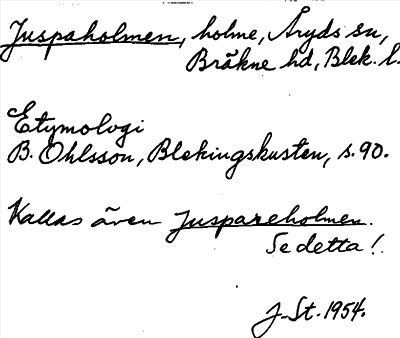 Juspaholmen, holme, Åryds sn,
Bräkne hd, Blek. l.
Etymologi
B. Ohlsson, Blekingskusten, s. 90.
Kallas även Juspareholmen.
Se detta!
J. St. 1954.